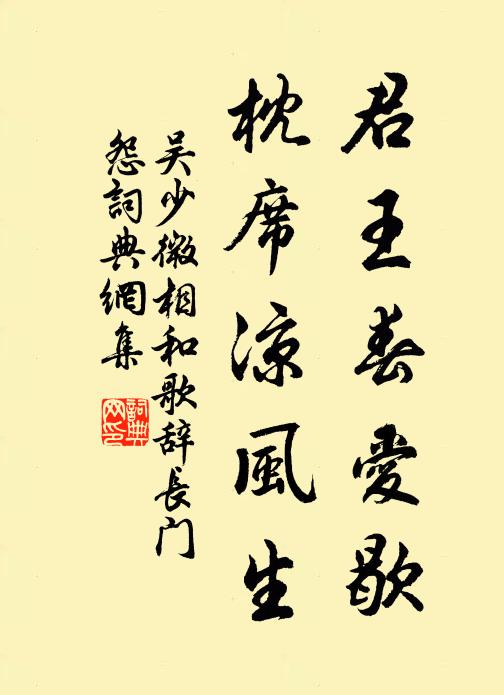 君王春愛歇
枕席涼風生
吴少微相和歌辞長门
怨詞典網集
詞典
网印